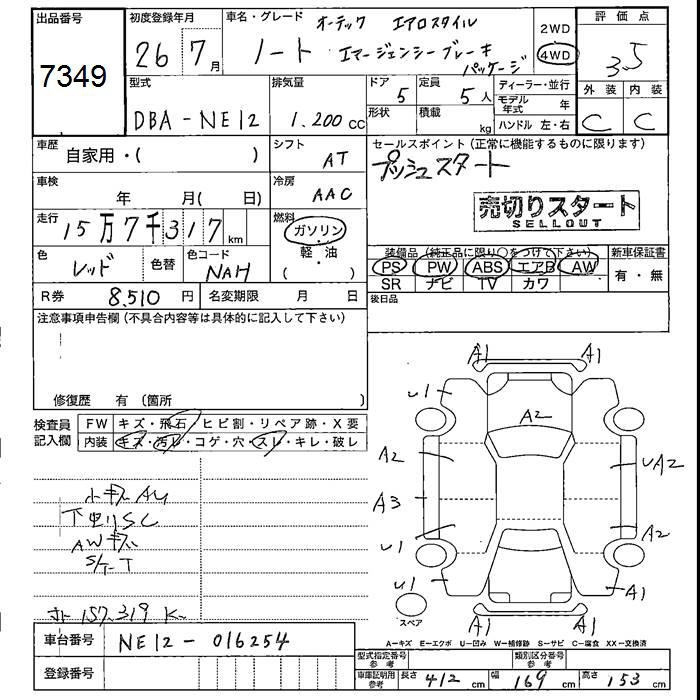 出品番号 初度登録年月 車名・グレード オーテック エアロスタイル 2WD 評価点
7349 26 7月 ノート エマージェンシーブレーキ 4WD 3.5
パッケージ
型式 排気量 ドア 定員 ディーラー・並行 外装 内装
DBA-NE12 1.200cc 5 5人 モデル年式 年 C C
形状 積載 kg ハンドル 左・右
車歴 自家用・( ) シフト AT セールスポイント(正常に機能するものに限ります)
プッシュスタート
車検 年 月( 日) 冷房 AAC
売切りスタート
SELLOUT
走行 15万7千317km 燃料 ガソリン
・
軽・油
( )
色 レッド 色替 色コード NAH
装備品(純正品に限り○をつけて下さい) 新車保証書
PS PW ABS エアB AW 有・無
SR ナビ TV カワ
R券 8,510円 名変期限 月 日 後日品
注意事項申告欄(不具合内容等は具体的に記入して下さい)
修復歴 有(箇所 )
検査員記入欄 FW キズ・飛石・ヒビ割・リペア跡・X要
内装 キズ・汚レ・コゲ・穴・スレ・キレ・破レ
A1 A1
U1 A1
A2
A2 UA2
A3
U1 A2
U1 A1
A1 A1
スペア
AU
下回りSC
AW
S/T-T
157,319 K
A=キズ E=エクボ U=凹み W=補修跡 S=サビ C=腐食 XX=交換済
車台番号 NE12-016254
登録番号
型式指定番号 参考 類別区分番号 参考
車庫証明用 参考 長さ 412cm 幅 169cm 高さ 153cm